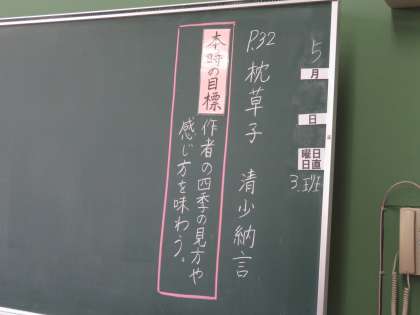 5月
日
曜日
日直
3.班
P.32 枕草子 清少納言
本時の目標
作者の四季の見方や
感じ方を味わう。